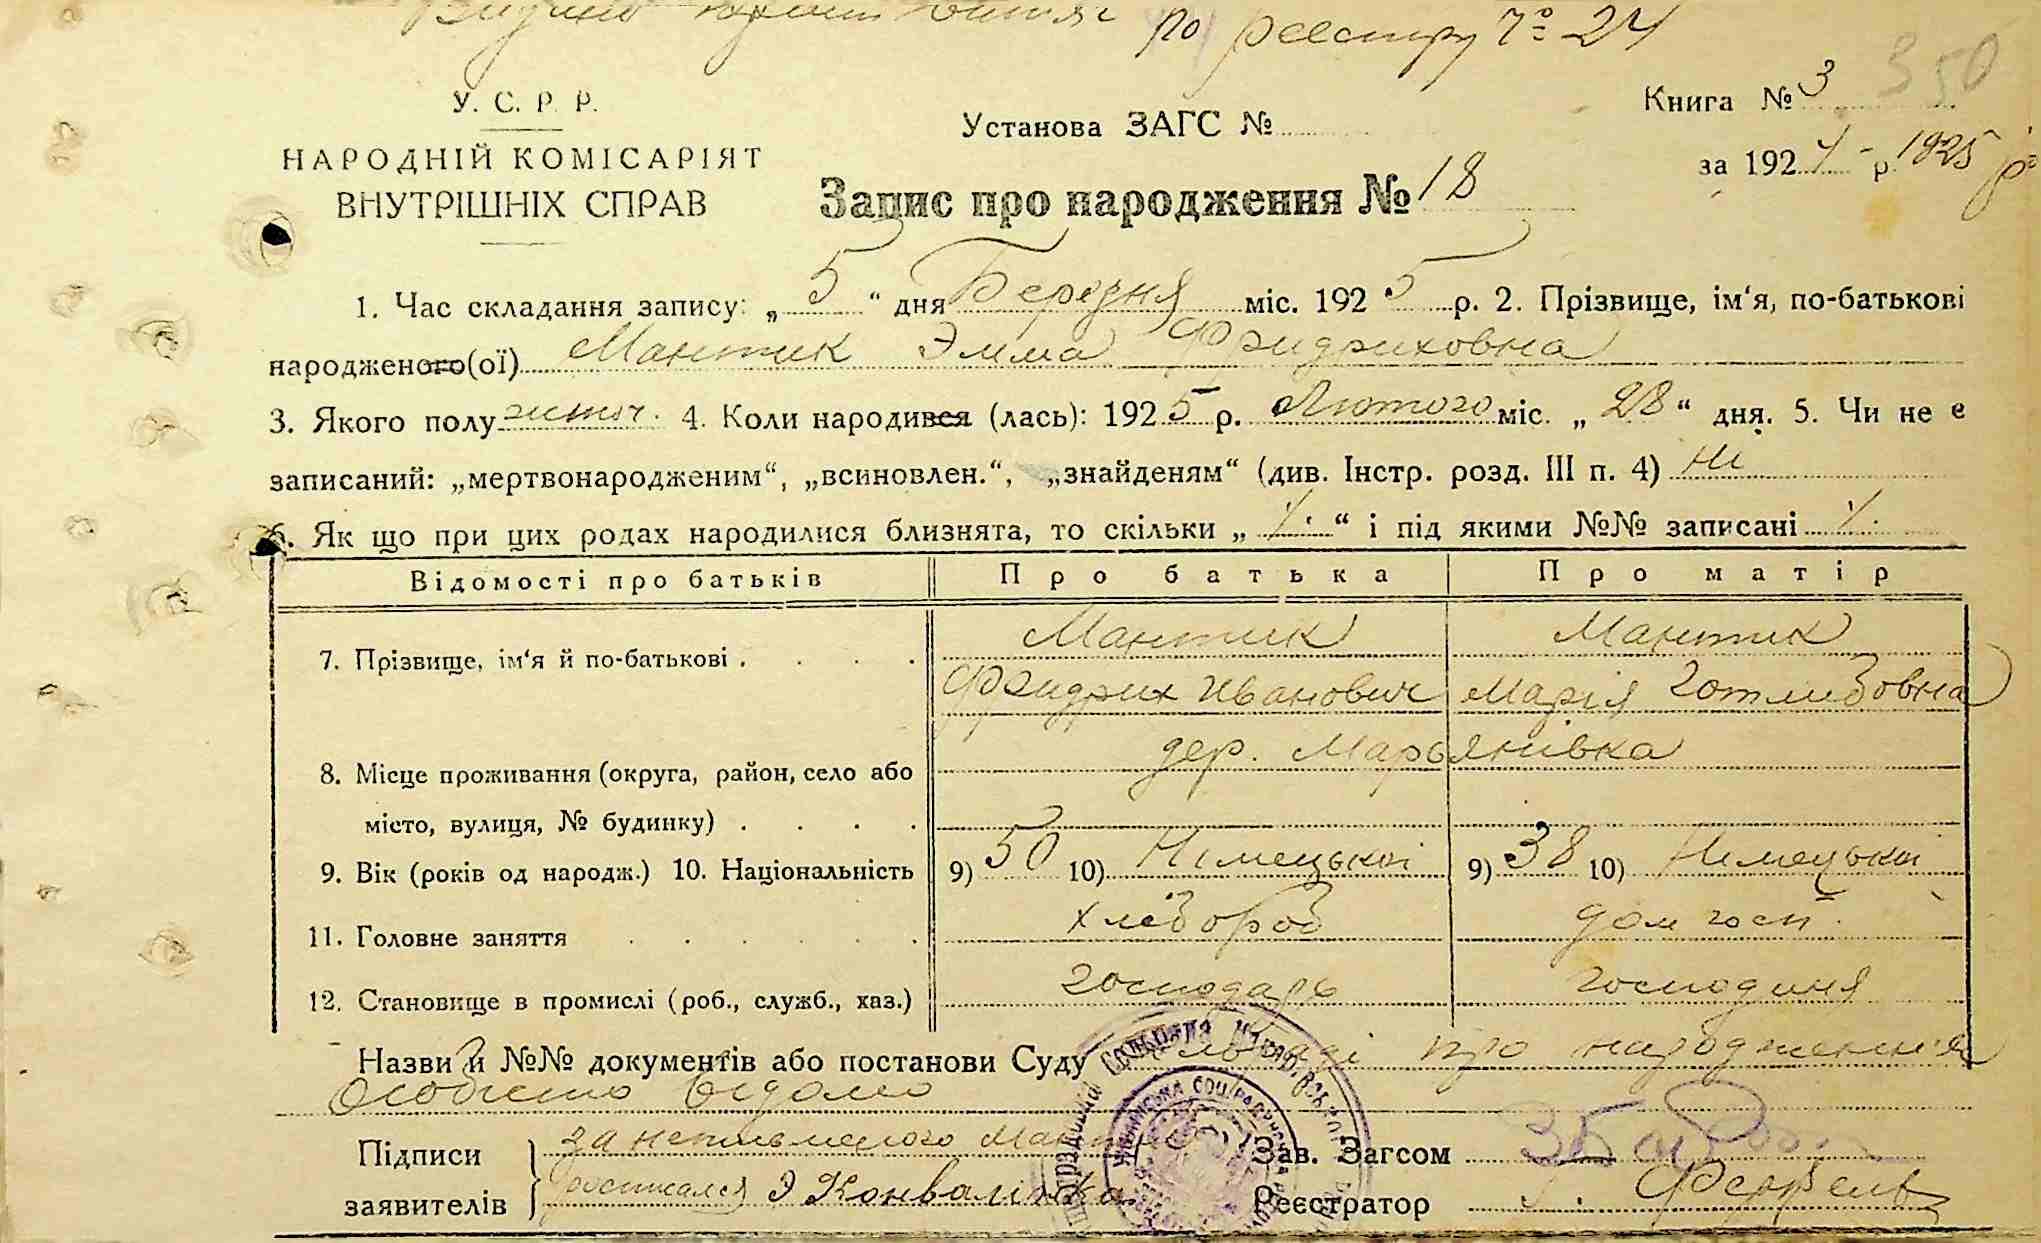 по реєстру № 24
У. С. Р. Р.
НАРОДНІЙ КОМІСАРІЯТ
ВНУТРІШНІХ СПРАВ
Установа ЗАГС №
Книга № 3 350
за 1924 - р. 1925 р.
Запис про народження № 18
1. Час складання запису: „ 5 “ дня Березня міс. 1925 р. 2. Прізвище, ім‘я, по-батькові
народженого(ої) Мантик Эмма Фридриховна
3. Якого полу жіноч. 4. Коли народився (лась): 1925 р. Лютого міс. „ 28 “ дня. 5. Чи не є
записаний: „мертвонародженим“, „всиновлен.“, „знайденям“ (див. Інстр. розд. III п. 4) Ні
6. Як що при цих родах народилися близнята, то скільки „ “ і під якими №№ записані
Відомості про батьків Про батька Про матір
7. Прізвище, ім‘я й по-батькові . . . . Мантик Мантик
Фридрих Иванович Марія Готлибовна
8. Місце проживання (округа, район, село або дер. Марьянівка
місто, вулиця, № будинку) . . . .
9. Вік (років од народж.) 10. Національність 9) 50 10) Німецької 9) 38 10) Німецької
11. Головне заняття . . . . . хлебороб дом госп.
12. Становище в промислі (роб., служб., хаз.) господарь господиня
Назви й №№ документів або постанови Суду про народження
Особисто відомо
Підписи за неписьменого Зав. Загсом
заявителів росписался Э Конвалінка Реєстратор